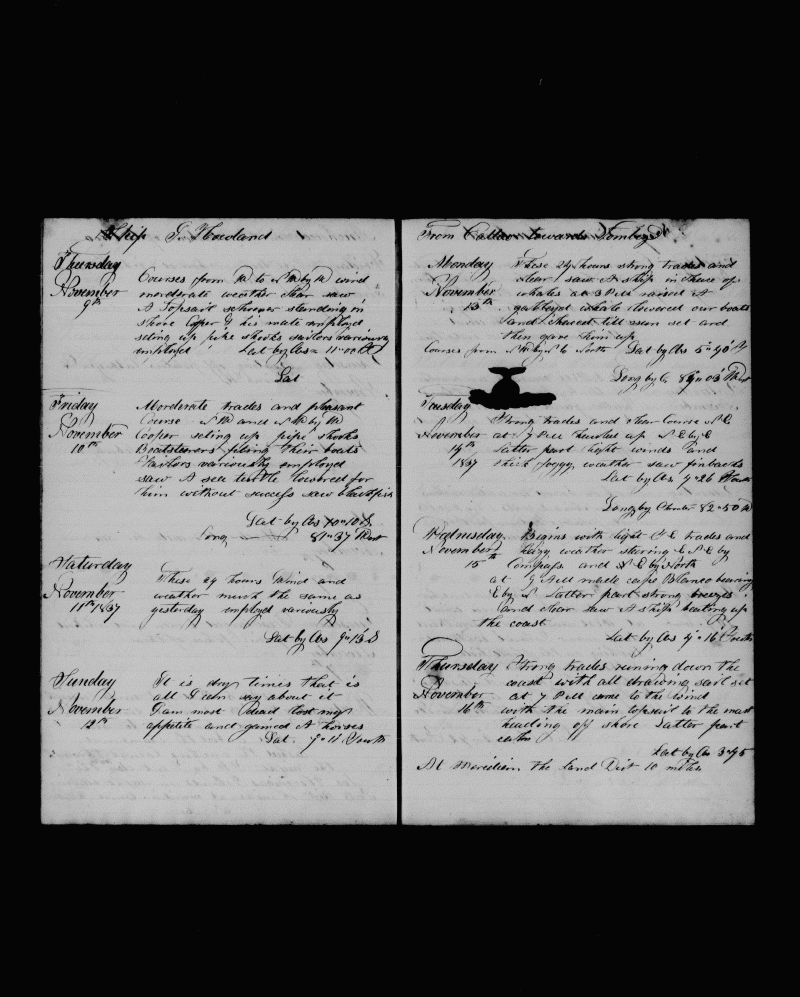 Ship G. Howland
Thursday
November
9th
Courses from W to NW by W wind
morderate weather clear saw
A Topsail schooner standing in
shore Cooper & his mate employd
seting up pipe shooks sailors variously
employed Lat by Obs = 11"00 S
Lat
Friday
November
10th
Morderate trades and pleasant
Course NW and NW by W
Cooper seting up pipe shooks
Boatsteerers fixing their boats
Sailors variously employed
saw A sea turtle lowered for
him without success saw blackfish
Lat by Obs 10"10 S
Long 81"37 West
Saturday
November
11th 1837
These 24 hours wind and
weather much the same as
yesterday employd variously
Lat by Obs 9"13 S
Sunday
November
12th
It is dry times that is
all I can say about it
I am most Dead lost my
appetite and gained A horses
Lat 7"11 South
From Callao towards Tombez
Monday
November
13th
These 24 hours strong trades and
clear saw A ship in chase of
whales at 3 PM raised A
whale lowered our boats
and chased till sun set and
then gave him up
Courses from NW by N to North Lat by Obs 5"40 S
Long by C 82"03 West
Tuesday
November
14th
1837
Strong trades and clear Course NE
at 7 PM hauled up NE by E
latter part light winds and
thick foggy weather saw finbacks
Lat by Obs 4"26 South
Long by Chro 82"50 W
Wednesday
November
15th
Begins with light SE trades and
hazy weather stering ENE by
Compass and NE by North
at 7 AM made cape Blanco bearing
E by N Latter part strong breezes
and clear saw A ship beating up
the coast
Lat by Obs 4"16 South
Thursday
November
16th
Strong trades runing down the
coast with all drawing sail set
at 7 PM came to the wind
with the main topsail to the mast
heading off shore Latter part
calm
Lat by Obs 3"45
At Meridian the land Dist 10 miles